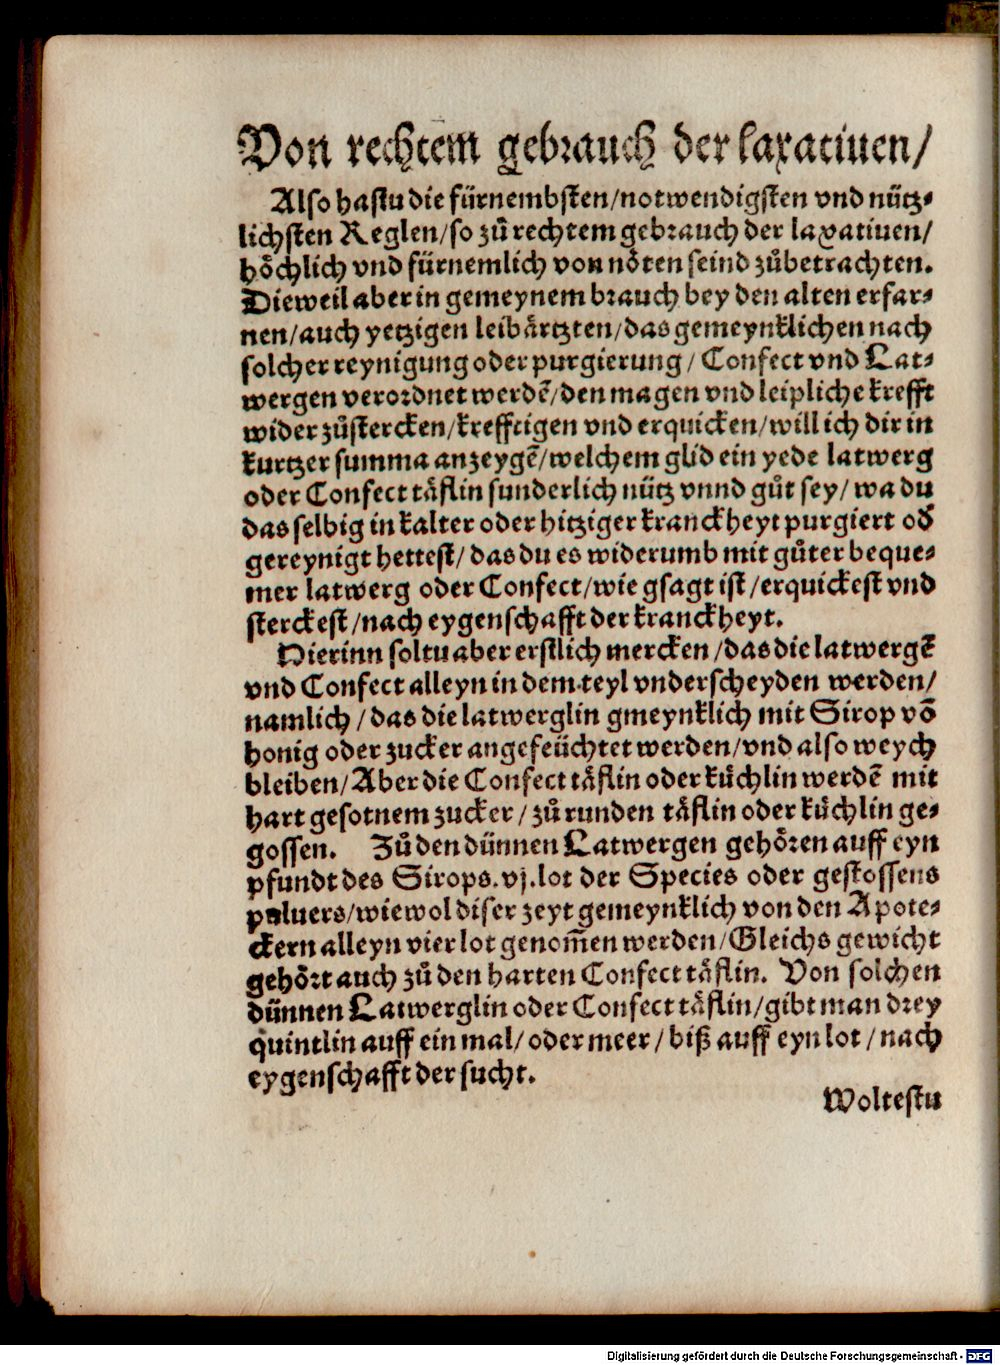 Von rechtem gebrauch der laxatiuen/
Also hastu die fürnembsten/notwendigsten vnd nütz⸗
lichsten Reglen/so zů rechtem gebrauch der laxatiuen/
hoͤchlich vnd fürnemlich von noͤten seind zůbetrachten.
Dieweil aber in gemeynem brauch bey den alten erfar⸗
nen/auch yetzigen leibaͤrtzten/das gemeynklichen nach
solcher reynigung oder purgierung/Confect vnd Lat⸗
wergen verordnet werdē/den magen vnd leipliche krefft
wider zůstercken/krefftigen vnd erquicken/will ich dir in
kurtzer summa anzeygē/welchem glid ein yede latwerg
oder Confect taͤflin sunderlich nütz vnnd gůt sey/wa du
das selbig in kalter oder hitziger kranckheyt purgiert oď
gereynigt hettest/das du es widerumb mit gůter beque⸗
mer latwerg oder Confect/wie gsagt ist/erquickest vnd
sterckest/nach eygenschafft der kranckheyt.
Hierinn soltu aber erstlich mercken/das die latwergē
vnd Confect alleyn in dem teyl vnderscheyden werden/
namlich/das die latwerglin gmeynklich mit Sirop vō
honig oder zucker angefeüchtet werden/vnd also weych
bleiben/Aber die Confect taͤflin oder kuͤchlin werdē mit
hart gesotnem zucker/zů runden taͤflin oder kuͤchlin ge⸗
gossen. Zů den dünnen Latwergen gehoͤren auff eyn
pfundt des Sirops.vj.lot der Species oder gestossens
puluers/wiewol diser zeyt gemeynklich von den Apote⸗
ckern alleyn vier lot genom̄en werden/Gleichs gewicht
gehoͤrt auch zů den harten Confect taͤflin. Von solchen
dünnen Latwerglin oder Confect taͤflin/gibt man drey
quintlin auff ein mal/oder meer/biß auff eyn lot/nach
eygenschafft der sucht.
Woltestu
Digitalisierung gefördert durch die Deutsche Forschungsgemeinschaft - DFG